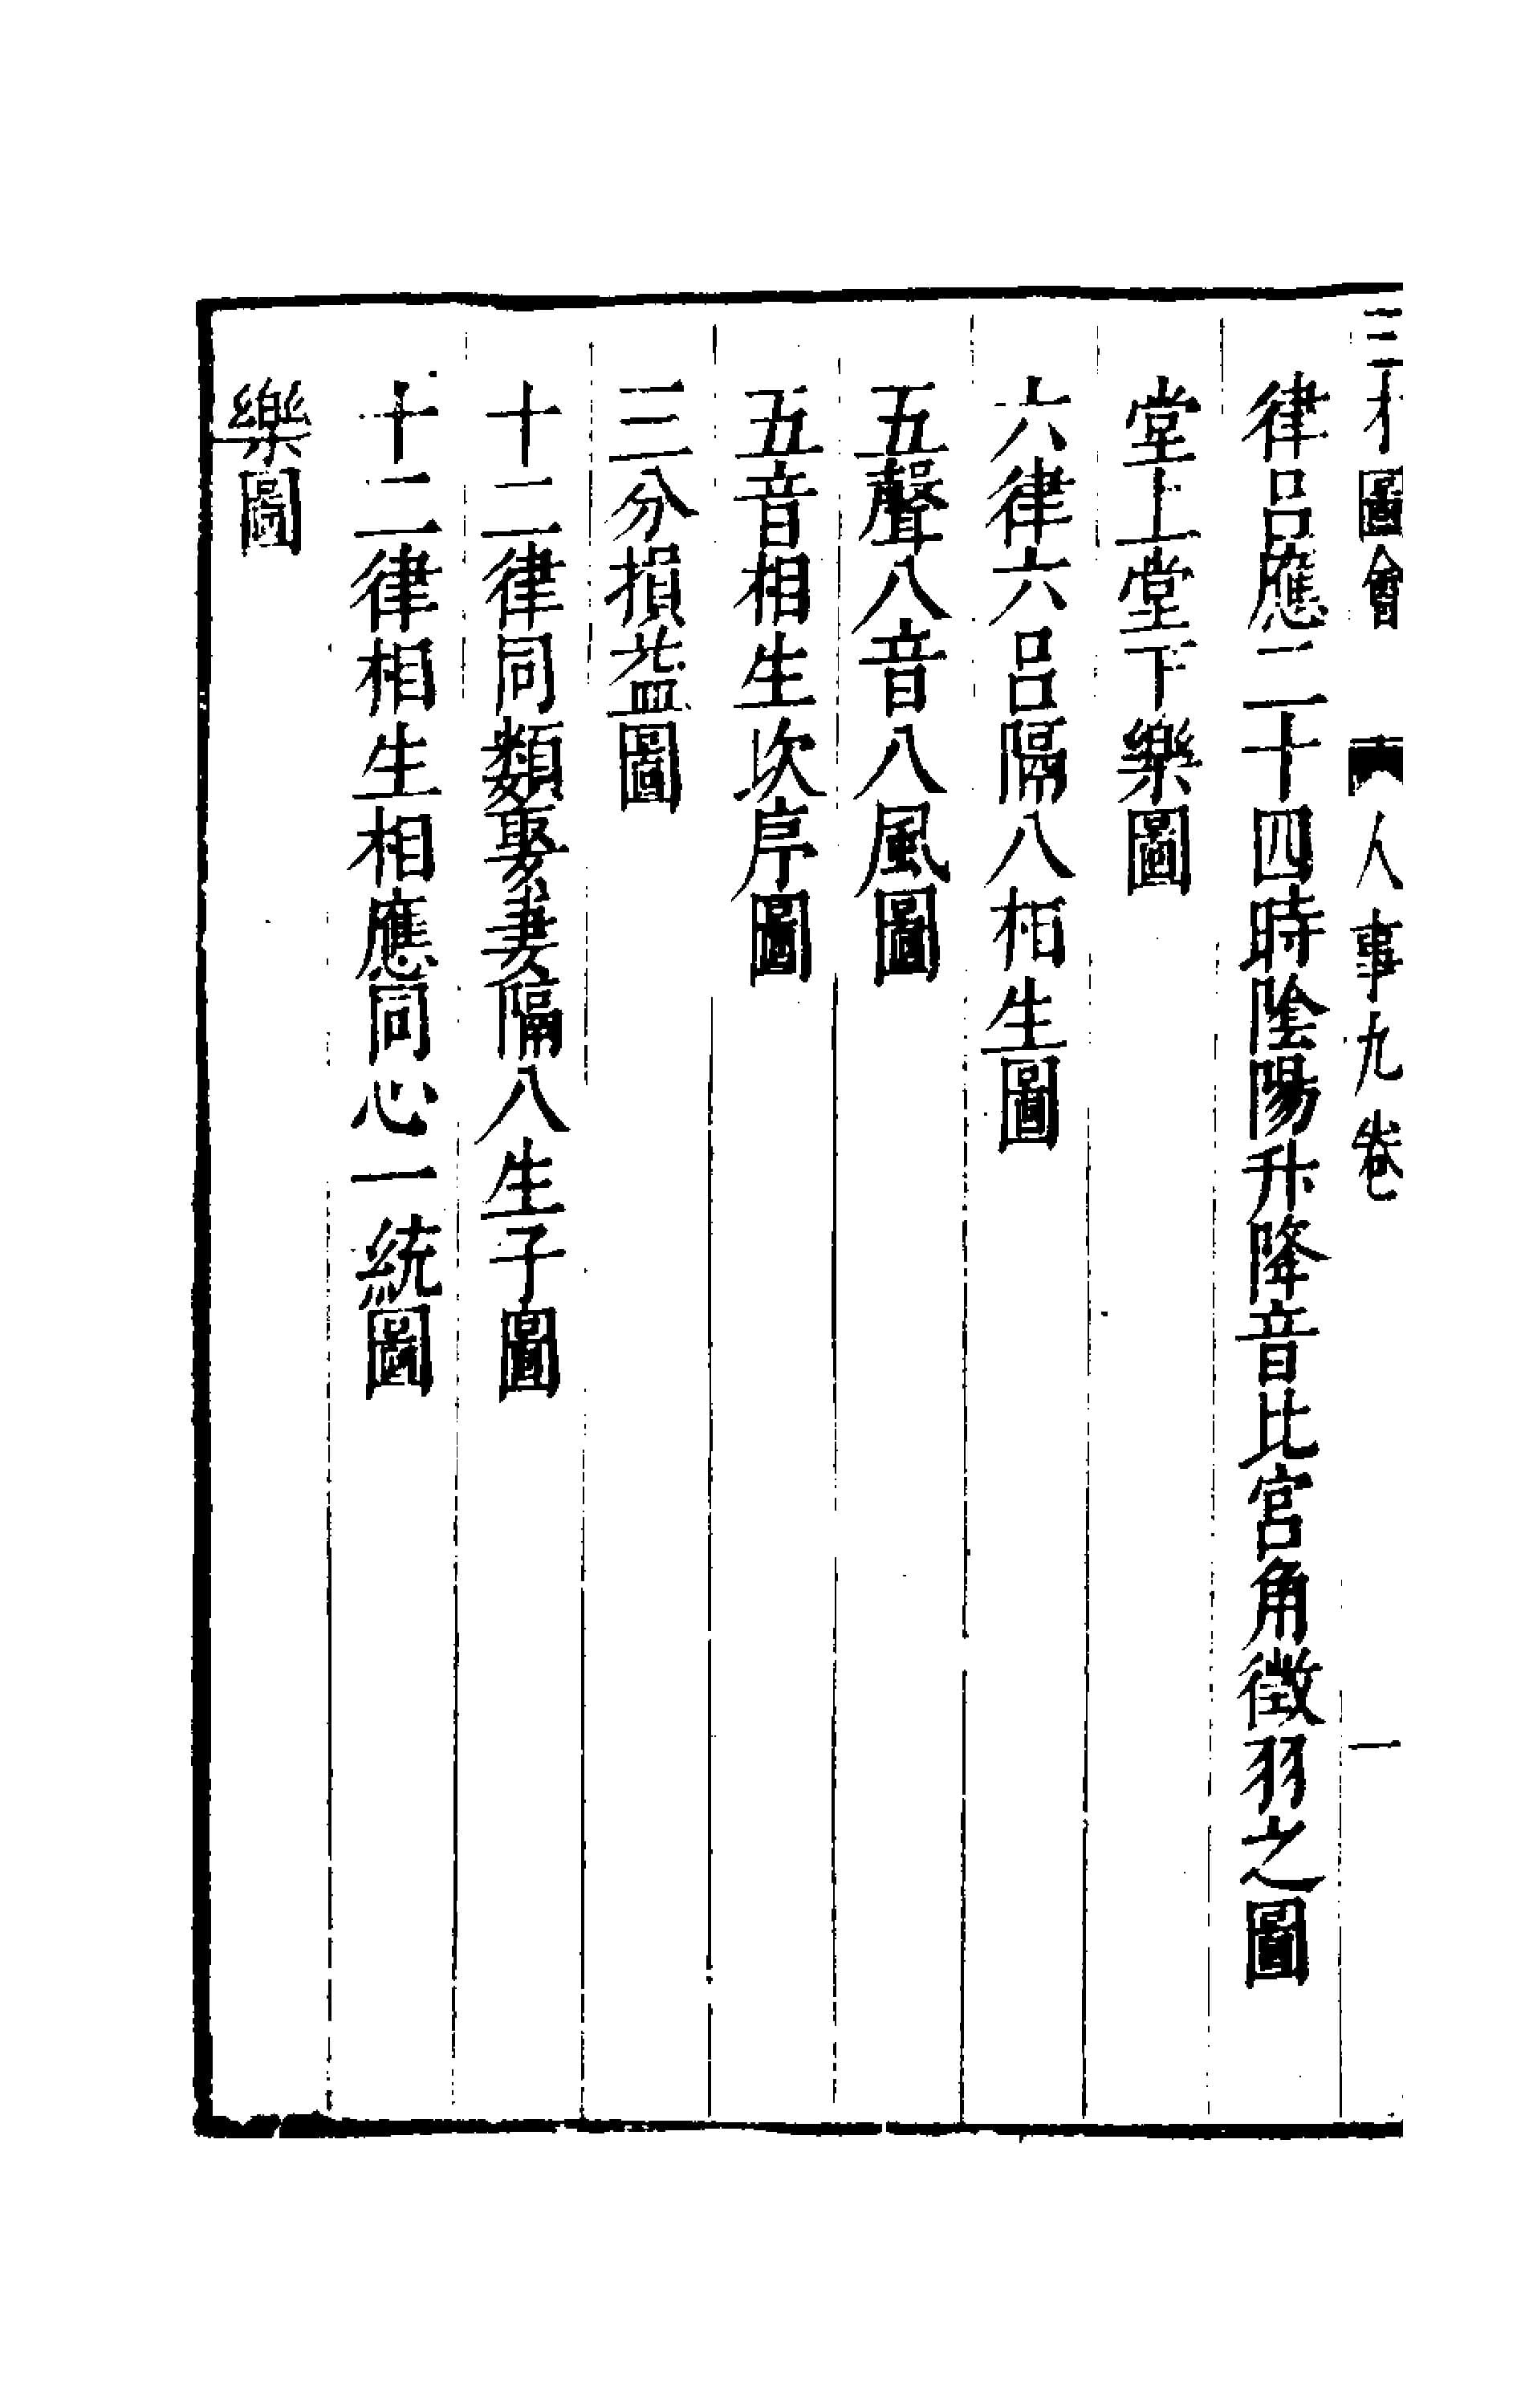 三才圖會 人事九卷 一
律呂應二十四時陰陽升降音比宮角徵羽之圖
堂上堂下樂圖
六律六呂隔八相生圖
五聲八音八風圖
五音相生次序圖
三分損益圖
十二律同類娶妻隔八生子圖
十二律相生相應同心一統圖
樂圖